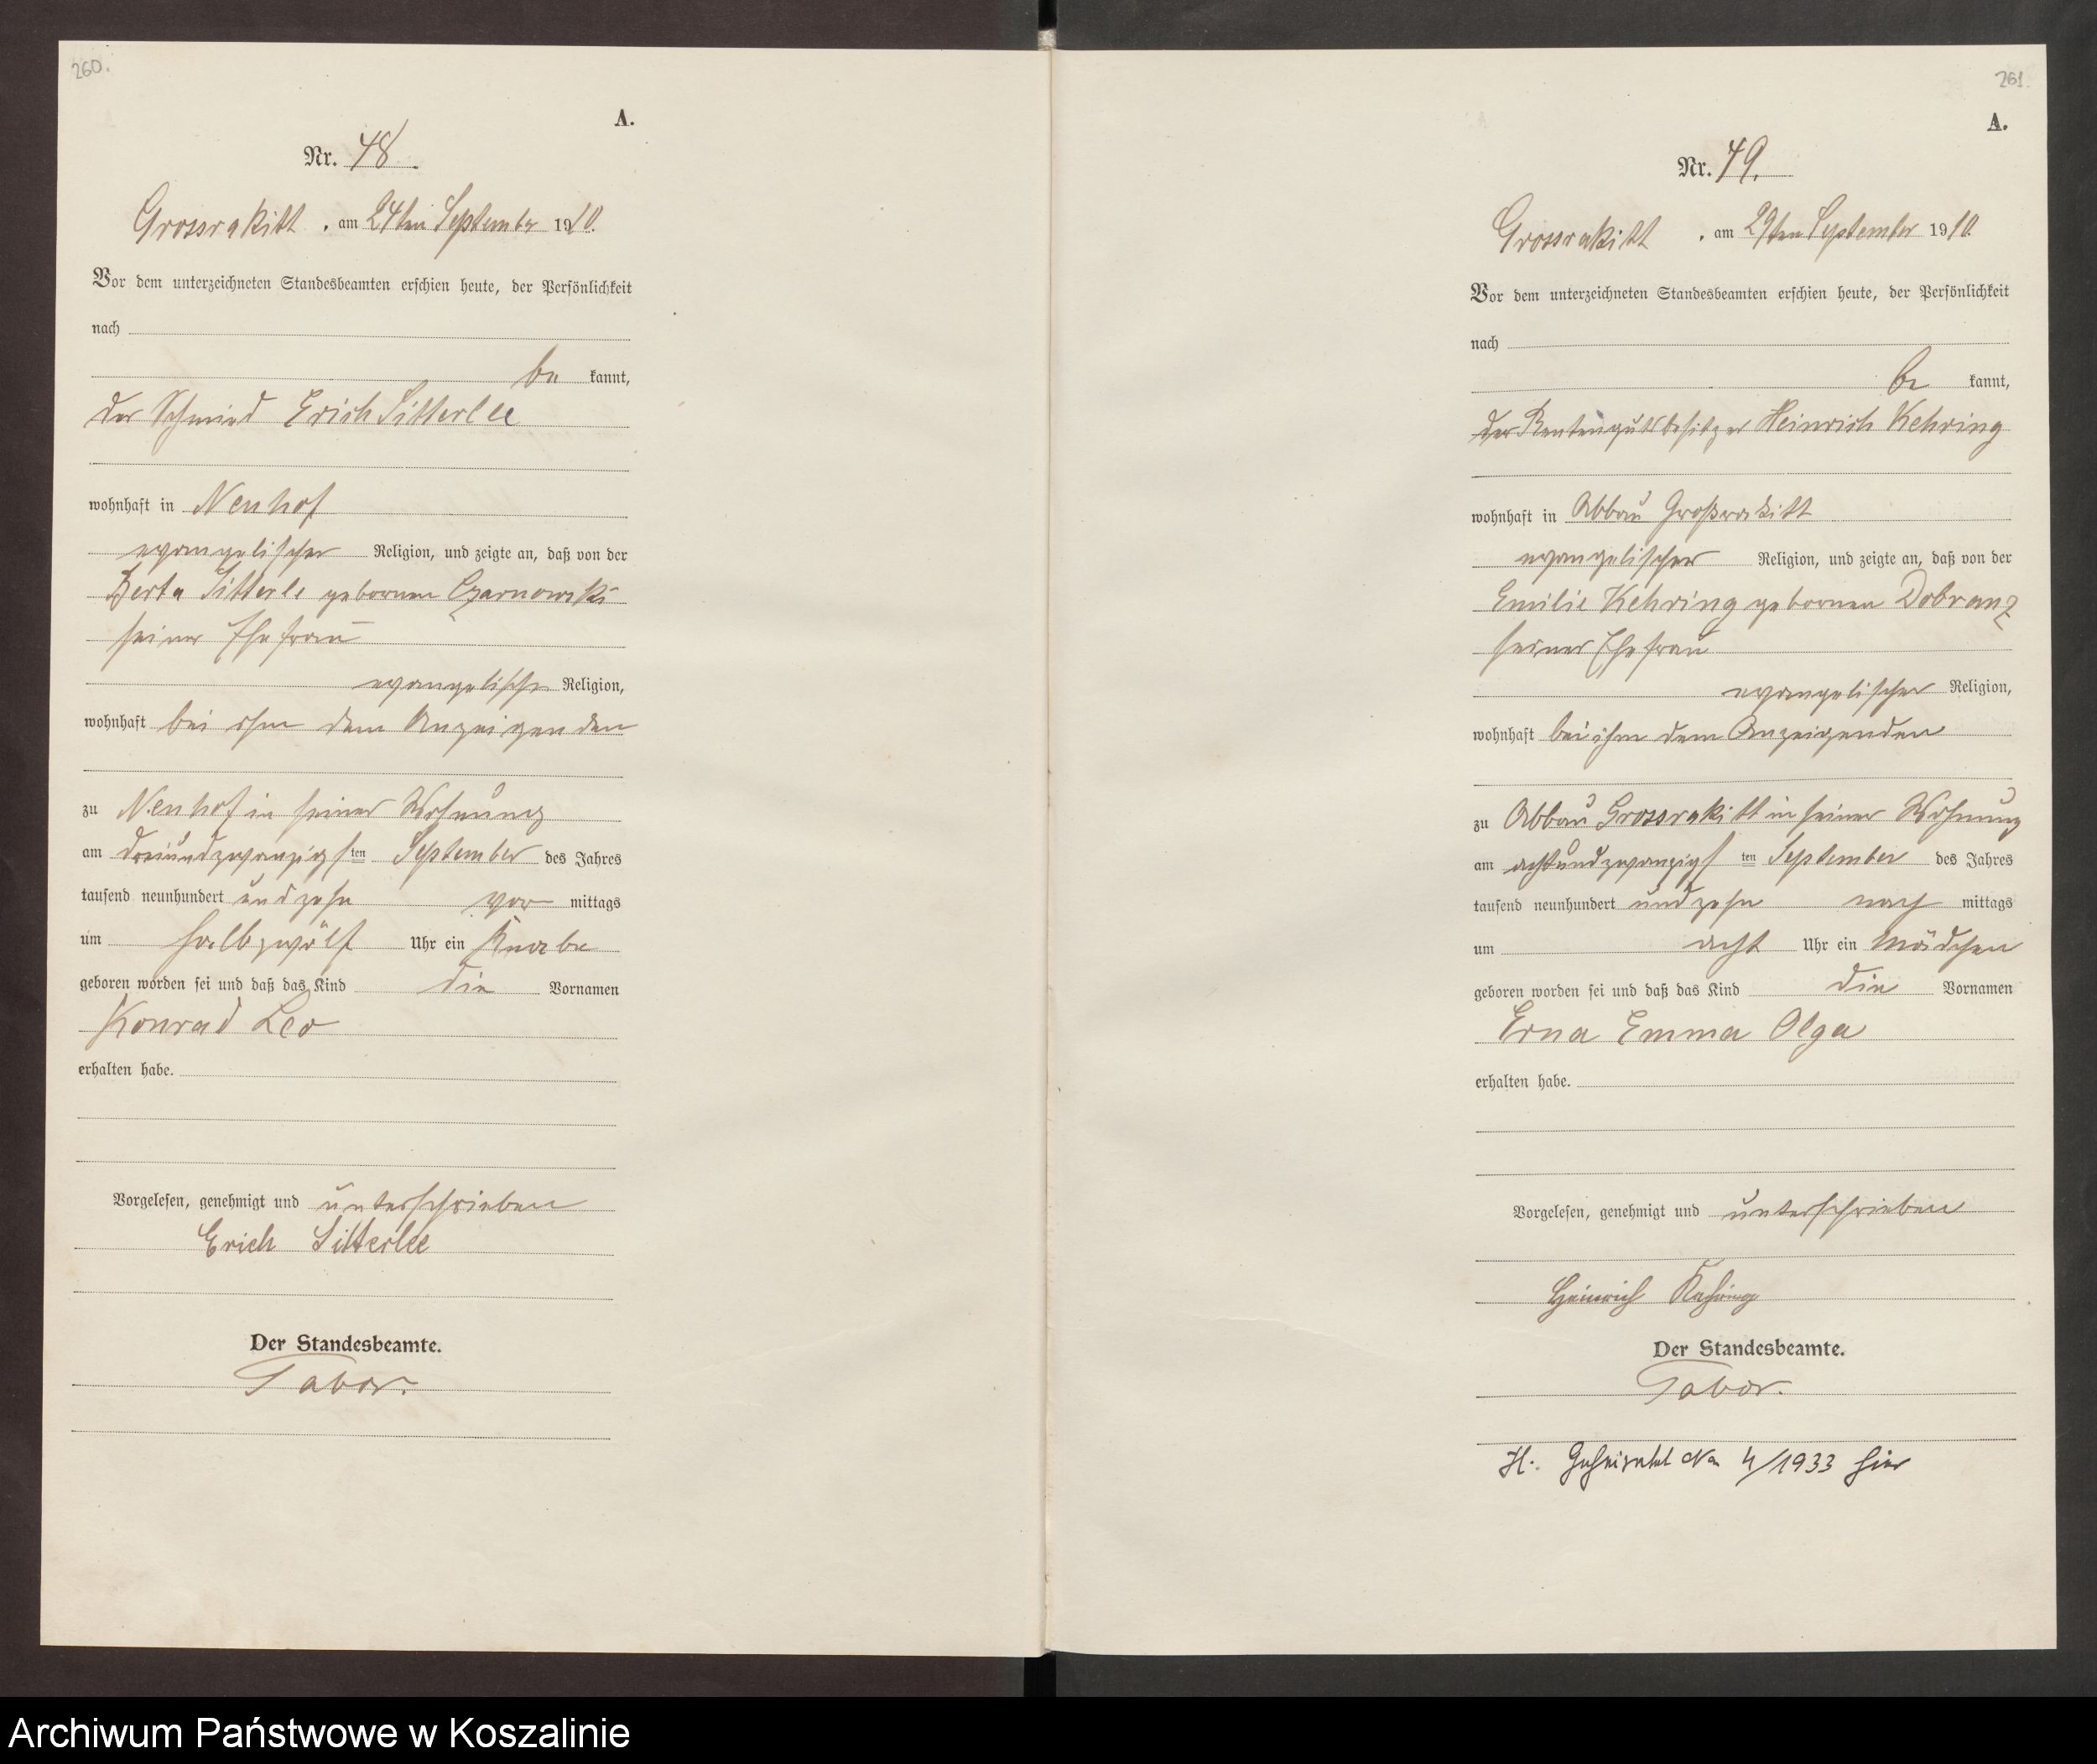 260.
A.
Nr. 48.
Grossrakitt, am 24ten September 1910.
Vor dem unterzeichneten Standesbeamten erschien heute, der Persönlichkeit
nach
be kannt,
der Schmied Erich Sitterlee
wohnhaft in Neuhof
evangelischer Religion, und zeigte an, daß von der
Berta Sitterle geborenen Czarnowski
seiner Ehefrau
evangelischer Religion,
wohnhaft bei ihm dem Anzeigenden
zu Neuhof in seiner Wohnung
am dreiundzwanzigsten September des Jahres
tausend neunhundert und zehn vor mittags
um halb zwölf Uhr ein Knabe
geboren worden sei und daß das Kind die Vornamen
Konrad Leo
erhalten habe.
Vorgelesen, genehmigt und unterschrieben
Erich Sitterlee
Der Standesbeamte.
Tabor.
261.
A.
Nr. 49.
Grossrakitt, am 29ten September 1910.
Vor dem unterzeichneten Standesbeamten erschien heute, der Persönlichkeit
nach
be kannt,
der Rentengutsbesitzer Heinrich Kehring
wohnhaft in Abbau Großrakitt
evangelischer Religion, und zeigte an, daß von der
Emilie Kehring geborenen Dobranz
seiner Ehefrau
evangelischer Religion,
wohnhaft bei ihm dem Anzeigenden
zu Abbau Grossrakitt in seiner Wohnung
am achtundzwanzigsten September des Jahres
tausend neunhundert und zehn nach mittags
um acht Uhr ein Mädchen
geboren worden sei und daß das Kind die Vornamen
Erna Emma Olga
erhalten habe.
Vorgelesen, genehmigt und unterschrieben
Heinrich Kehring
Der Standesbeamte.
Tabor.
H. Geheiratet No 4/1933 hier
Archiwum Państwowe w Koszalinie